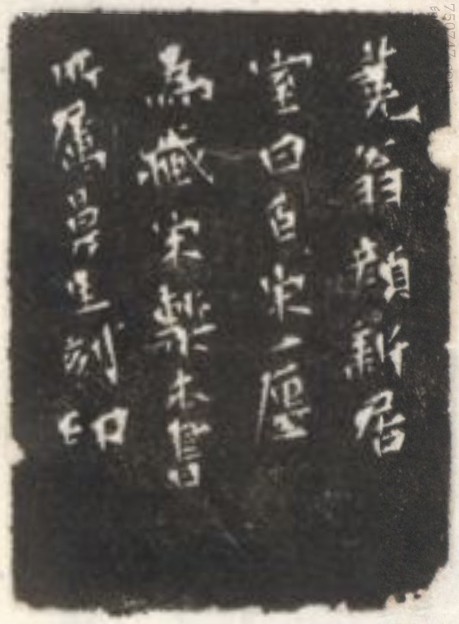 蕘翁顏新居
室曰百宋一廛
為藏宋槧本書
所屬曼生刻印